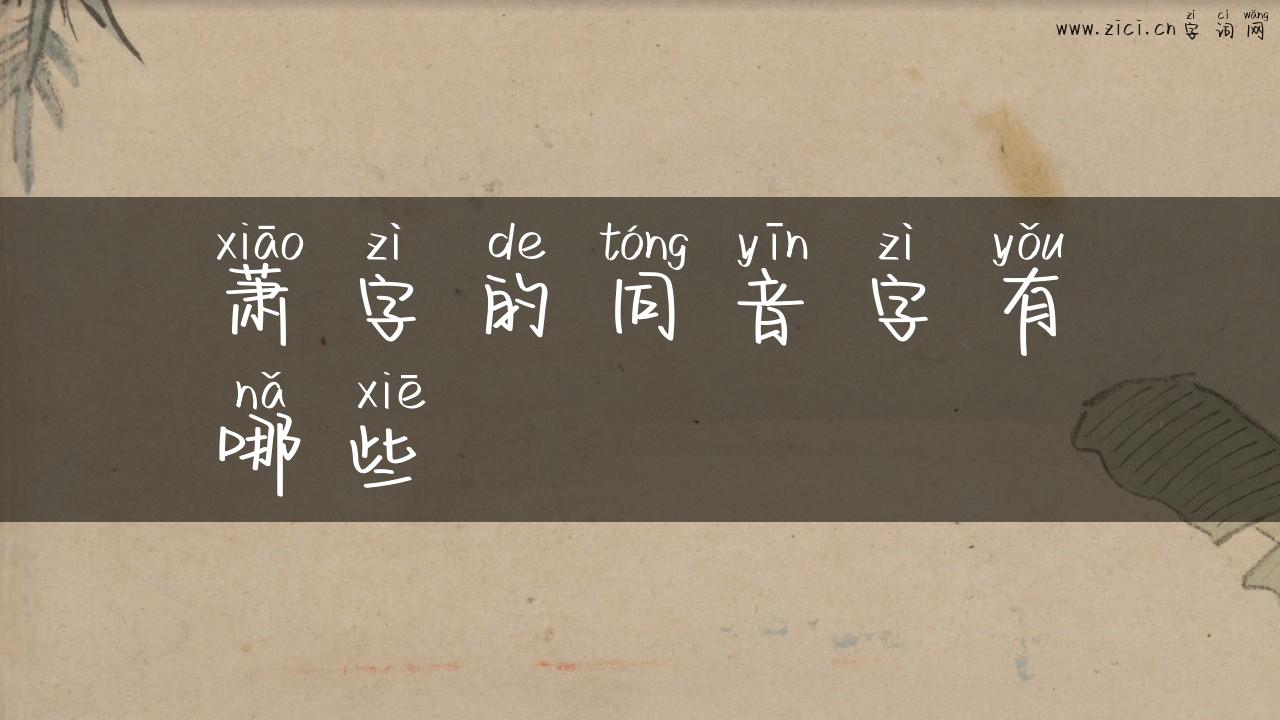 zì cí wǎng
www.zici.cn 字 词 网
xiāo zì de tóng yīn zì yǒu
萧 字 的 同 音 字 有
nǎ xiē
哪 些